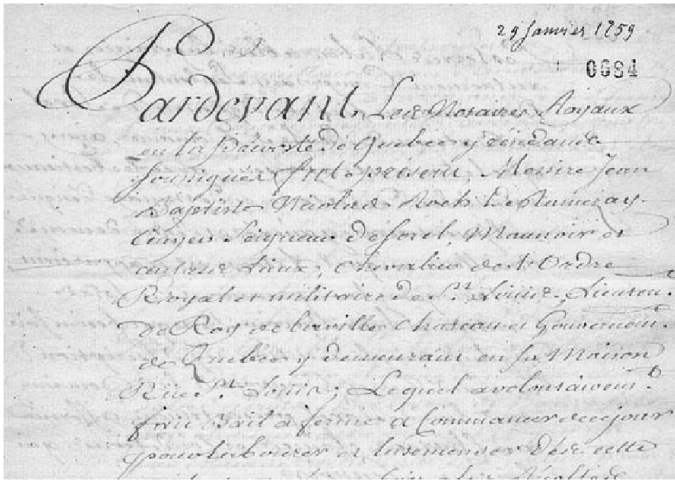 29 Janvier 1759
0684
Pardevant Les Notaires Royaux
en la prevosté de Quebec y residans
soussignés fut présent, Messire Jean
Baptiste Nicolas Roch De Ramezay
Ecuyer Seigneur de Sorel, Monnoir et
autres Lieux, Chevalier de L'Ordre
Royal et militaire de St. Louis, Lieuten.t
de Roy de la ville Chateau et Gouvernem.t
de Quebec y demeurant en sa Maison
Rüe St. Louis; Lequel a volontairem.t
fait Bail à ferme a Commancer de ce jour
pour labourer et Ensemenser cette